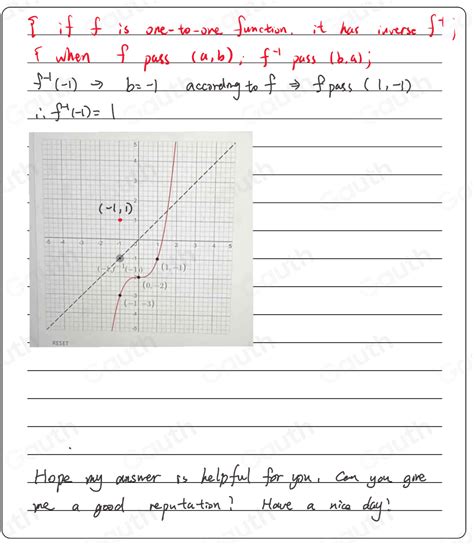 if f is one-to-one function. it has inverse f⁻¹;
when f pass (a,b), f⁻¹ pass (b,a);
f⁻¹(-1) → b=-1 according to f ⇒ f pass (1,-1)
∴ f⁻¹(-1) = 1
5
4
(-1,1)
-5 -4 -3 1 2 3 4 5
(-1,f⁻¹(-1)) (1,-1)
(0,-2)
(-1,-3)
-4
-5
RESET
Hope my answer is helpful for you, Can you give
me a good reputation? Have a nice day!
Gauth